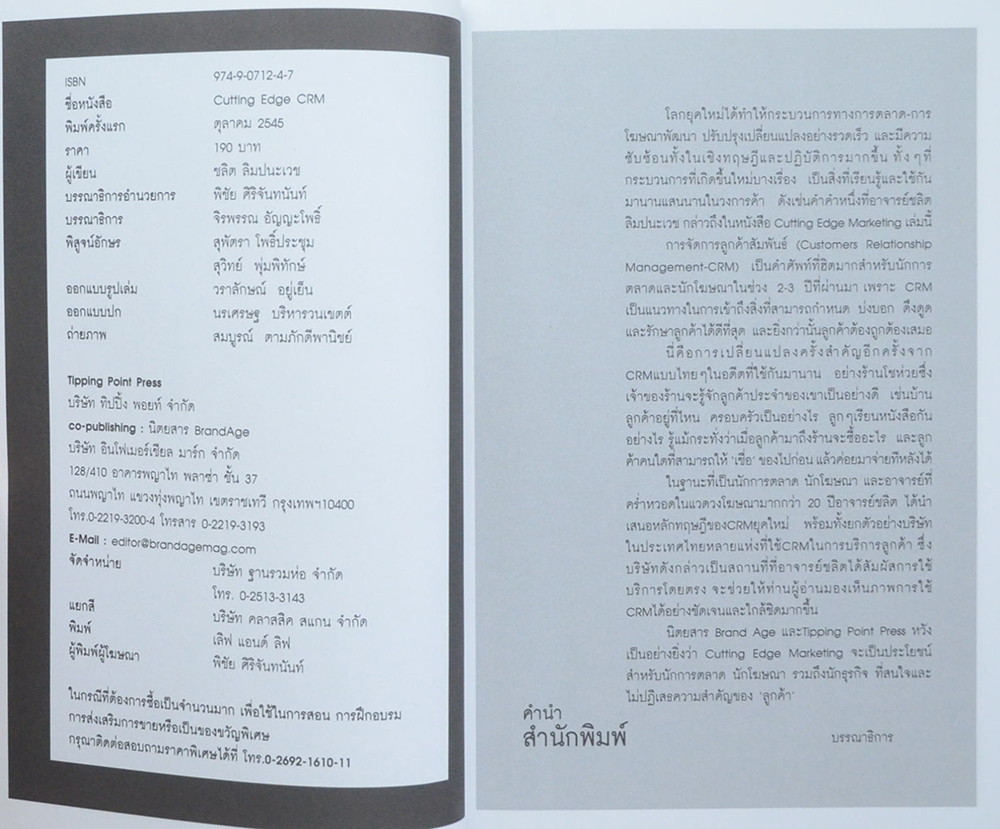 ISBN 974-9-0712-4-7
ชื่อหนังสือ Cutting Edge CRM
พิมพ์ครั้งแรก ตุลาคม 2545
ราคา 190 บาท
ผู้เขียน ชลิต ลิมปนะเวช
บรรณาธิการอำนวยการ พิชัย ศิริจันทนันท์
บรรณาธิการ จิรพรรณ อัญญะโพธิ์
พิสูจน์อักษร สุพัตรา โพธิ์ประชุม
สุวิทย์ พุ่มพิทักษ์
ออกแบบรูปเล่ม วราลักษณ์ อยู่เย็น
ออกแบบปก นรเศรษฐ บริหารวนเขตต์
ถ่ายภาพ สมบูรณ์ ตามภักดีพานิชย์
Tipping Point Press
บริษัท ทิปปิ้ง พอยท์ จำกัด
co-publishing : นิตยสาร BrandAge
บริษัท อินโฟเมอร์เชียล มาร์ก จำกัด
128/410 อาคารพญาไท พลาซ่า ชั้น 37
ถนนพญาไท แขวงทุ่งพญาไท เขตราชเทวี กรุงเทพฯ10400
โทร.0-2219-3200-4 โทรสาร 0-2219-3193
E-Mail : editor@brandagemag.com
จัดจำหน่าย บริษัท ฐานรวมห่อ จำกัด
โทร. 0-2513-3143
แยกสี บริษัท คลาสสิค สแกน จำกัด
พิมพ์ เลิฟ แอนด์ ลิฟ
ผู้พิมพ์ผู้โฆษณา พิชัย ศิริจันทนันท์
ในกรณีที่ต้องการซื้อเป็นจำนวนมาก เพื่อใช้ในการสอน การฝึกอบรม
การส่งเสริมการขายหรือเป็นของขวัญพิเศษ
กรุณาติดต่อสอบถามราคาพิเศษได้ที่ โทร.0-2692-1610-11
โลกยุคใหม่ได้ทำให้กระบวนการทางการตลาด-การ
โฆษณาพัฒนา ปรับปรุงเปลี่ยนแปลงอย่างรวดเร็ว และมีความ
ซับซ้อนทั้งในเชิงทฤษฎีและปฏิบัติการมากขึ้น ทั้งๆที่
กระบวนการที่เกิดขึ้นใหม่บางเรื่อง เป็นสิ่งที่เรียนรู้และใช้กัน
มานานแสนนานในวงการค้า ดังเช่นคำคำหนึ่งที่อาจารย์ชลิต
ลิมปนะเวช กล่าวถึงในหนังสือ Cutting Edge Marketing เล่มนี้
การจัดการลูกค้าสัมพันธ์ (Customers Relationship
Management-CRM) เป็นคำศัพท์ที่ฮิตมากสำหรับนักการ
ตลาดและนักโฆษณาในช่วง 2-3 ปีที่ผ่านมา เพราะ CRM
เป็นแนวทางในการเข้าถึงสิ่งที่สามารถกำหนด บ่งบอก ดึงดูด
และรักษาลูกค้าได้ดีที่สุด และยิ่งกว่านั้นลูกค้าต้องถูกต้องเสมอ
นี่คือการเปลี่ยนแปลงครั้งสำคัญอีกครั้งจาก
CRMแบบไทยๆในอดีตที่ใช้กันมานาน อย่างร้านโชห่วยซึ่ง
เจ้าของร้านจะรู้จักลูกค้าประจำของเขาเป็นอย่างดี เช่นบ้าน
ลูกค้าอยู่ที่ไหน ครอบครัวเป็นอย่างไร ลูกๆเรียนหนังสือกัน
อย่างไร รู้แม้กระทั่งว่าเมื่อลูกค้ามาถึงร้านจะซื้ออะไร และลูก
ค้าคนใดที่สามารถให้ 'เชื่อ' ของไปก่อน แล้วค่อยมาจ่ายทีหลังได้
ในฐานะที่เป็นนักการตลาด นักโฆษณา และอาจารย์ที่
คร่ำหวอดในแวดวงโฆษณามากกว่า 20 ปีอาจารย์ชลิต ได้นำ
เสนอหลักทฤษฎีของCRMยุคใหม่ พร้อมทั้งยกตัวอย่างบริษัท
ในประเทศไทยหลายแห่งที่ใช้CRMในการบริการลูกค้า ซึ่ง
บริษัทดังกล่าวเป็นสถานที่ที่อาจารย์ชลิตได้สัมผัสการใช้
บริการโดยตรง จะช่วยให้ท่านผู้อ่านมองเห็นภาพการใช้
CRMได้อย่างชัดเจนและใกล้ชิดมากขึ้น
นิตยสาร Brand Age และTipping Point Press หวัง
เป็นอย่างยิ่งว่า Cutting Edge Marketing จะเป็นประโยชน์
สำหรับนักการตลาด นักโฆษณา รวมถึงนักธุรกิจ ที่สนใจและ
ไม่ปฏิเสธความสำคัญของ 'ลูกค้า'
คำนำ
สำนักพิมพ์
บรรณาธิการ